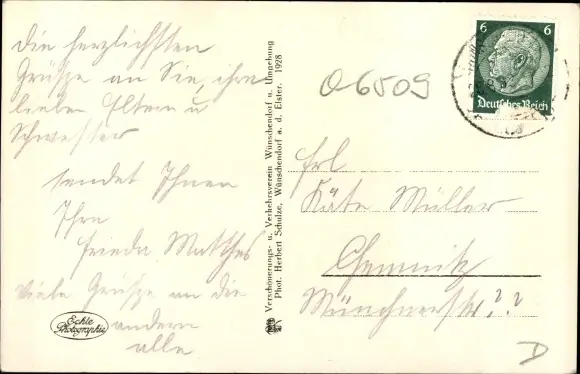 die herzlichsten
Grüsse an Sie, ihre
lieben Eltern u
Schwester
sendet Ihnen
Ihre
Frieda Matthes
Viele Grüsse an die
andern
alle
Echte
Photographie
Verschönerungs- u. Verkehrsverein Wünschendorf u. Umgebung
Phot. Herbert Schulze, Wünschendorf a. d. Elster. 1928
06509
6 6
Deutsches Reich
Frl
Käte Müller
Chemnitz
Münchnerstr. ??
D